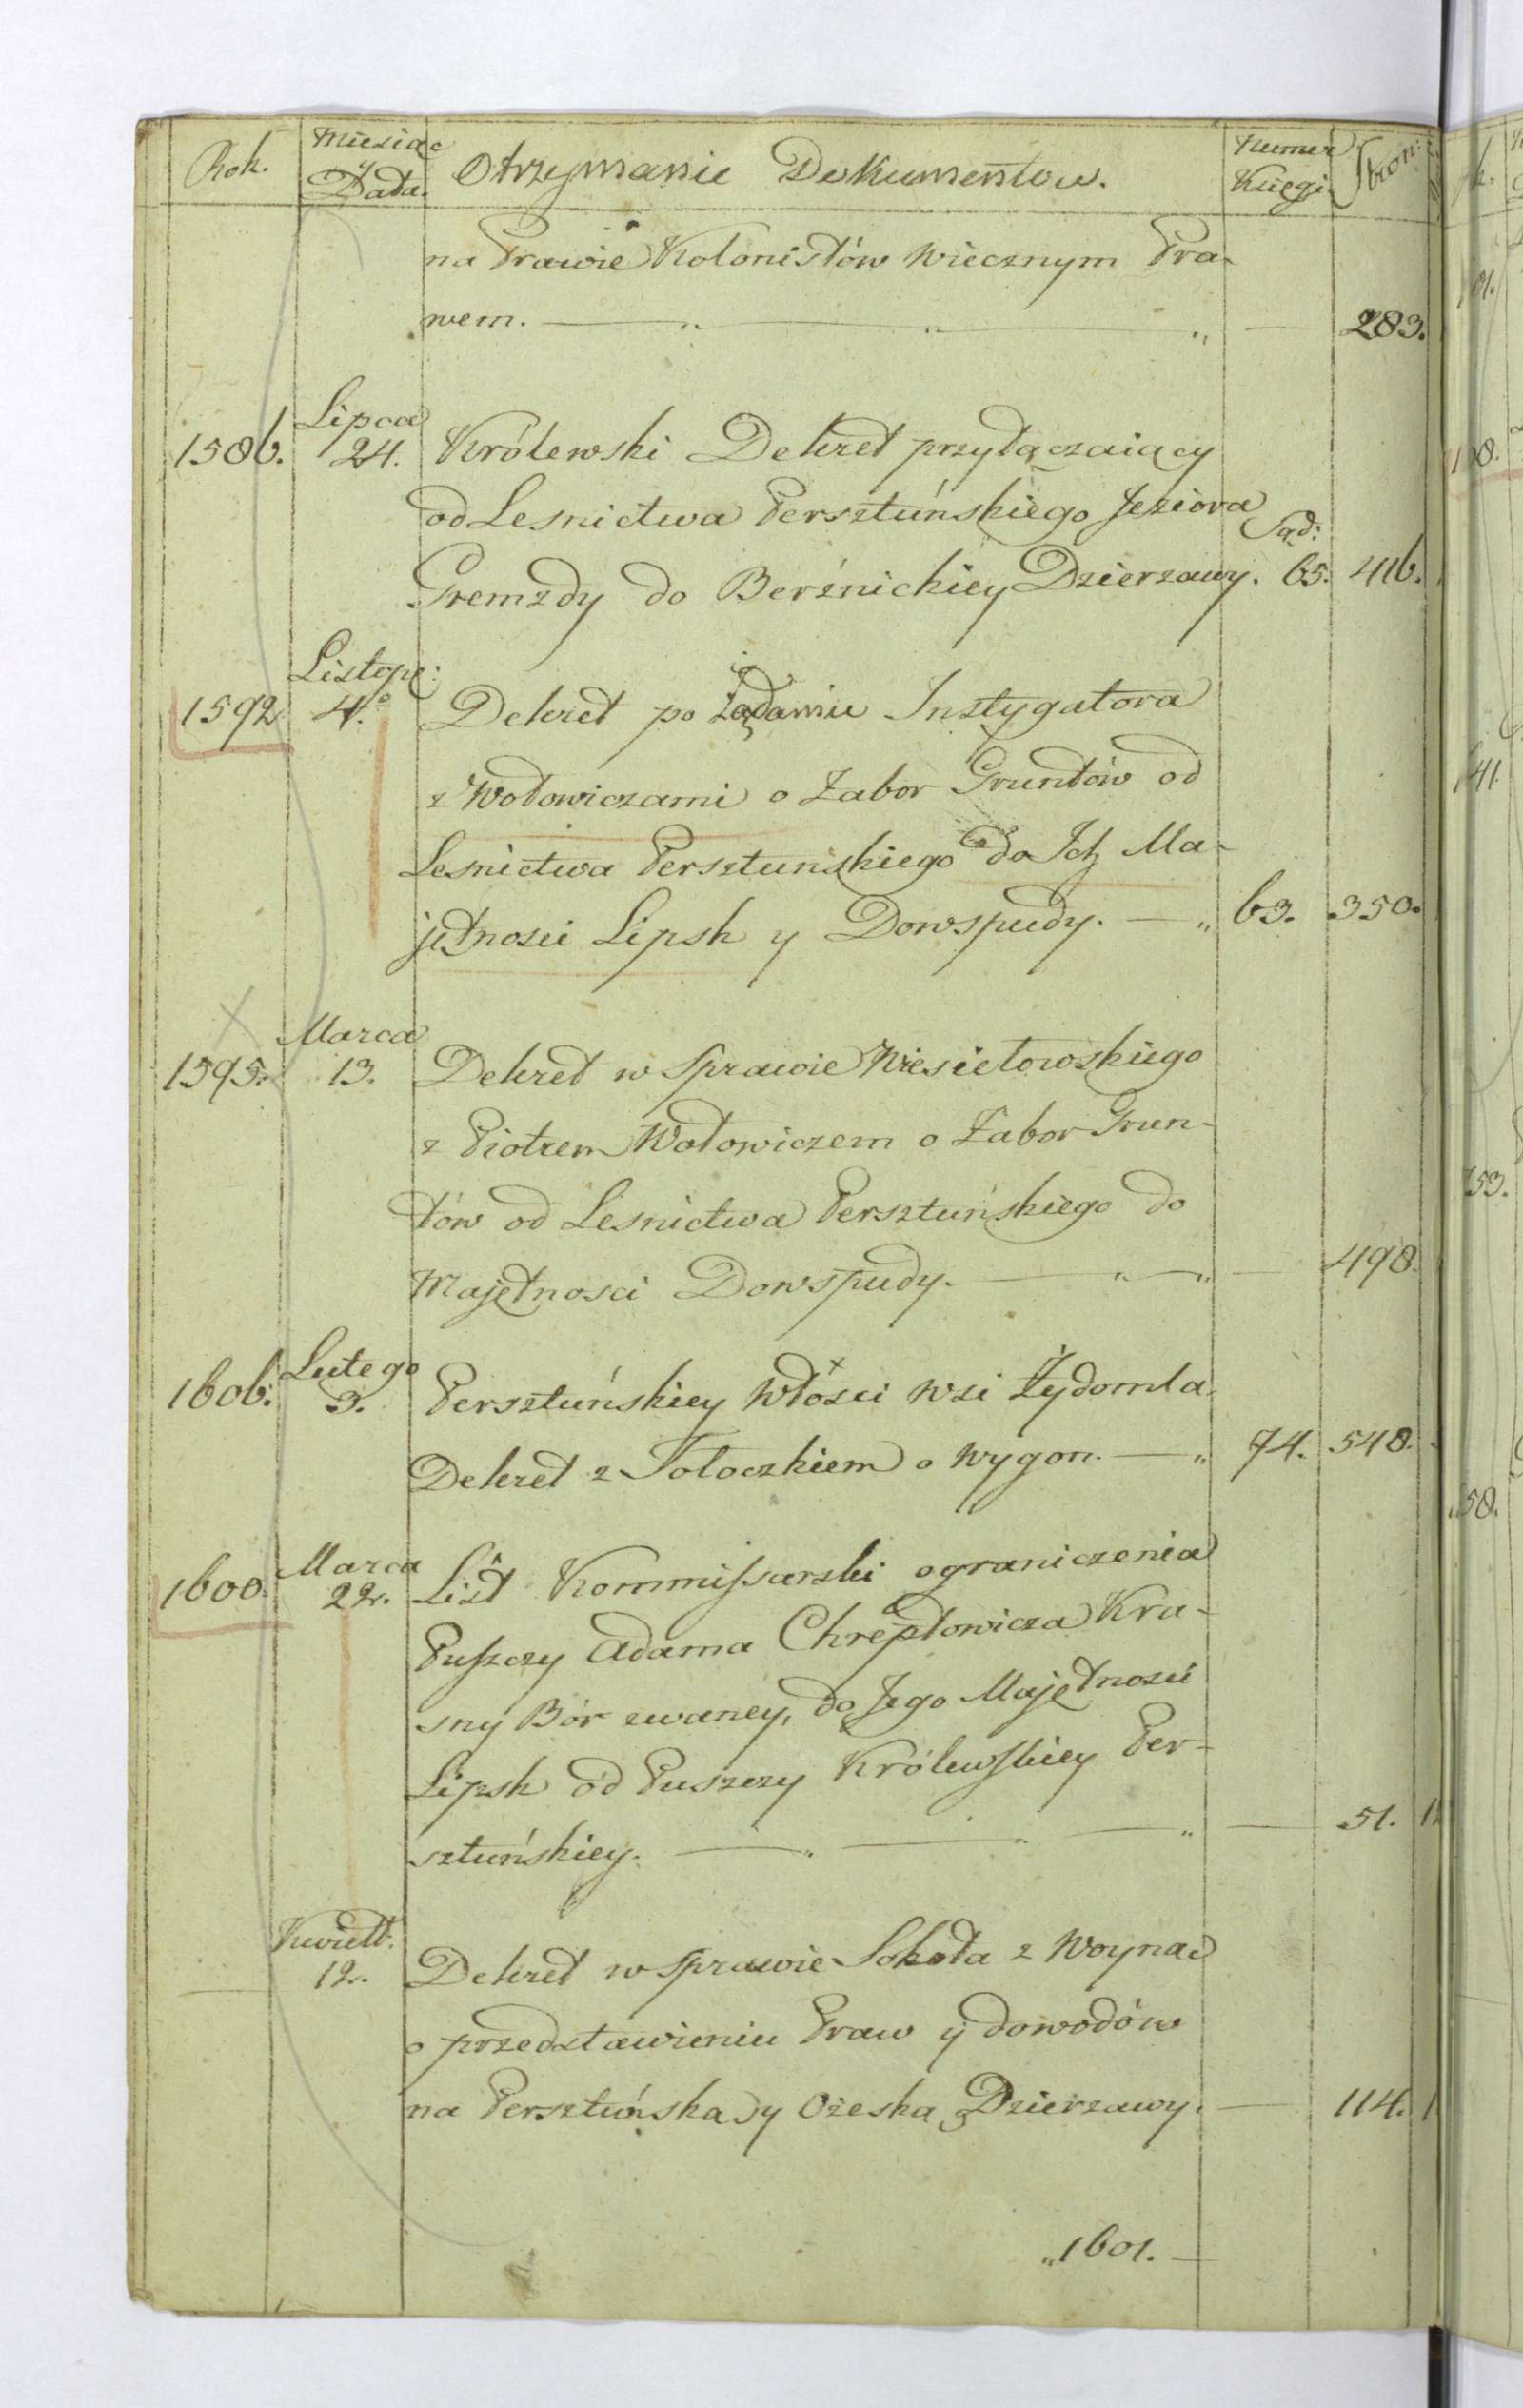 Rok. Miesiąc y Data. Otrzymanie Dokumentow. Numer Księgi Stron:
na Prawie Kolonistów wiecznym Pra-
wem. 283.
Lipca
1586. 24. Królewski Dekret przyłączaiący
od Lesnictwa Persztuńskiego Jeziora Sąd:
Gremzdy do Berźnickiey Dzierzawy. 65. 416.
Listop:
1592 4. Dekret po żądaniu Instygatora
z Wołowiczami o Zabor Gruntów od
Lesnictwa Persztunskiego do Ich Ma-
jętnosci Lipsk y Dowspudy. 63. 350.
Marca
1595. 13. Dekret w Sprawie Wiesiełowskiego
z Piotrem Wołowiczem o Zabor Grun-
tów od Lesnictwa Persztuńskiego do
Majętnosci Dowspudy. 498.
Lutego
1606. 3. Persztuńskiey Włósci wsi Żydomla
Dekret z Tołoczkiem o wygon. 74. 548.
Marca
1600. 22. List Kommissarski ograniczenia
Puszczy Adama Chreptowicza Kra-
sny Bór zwaney, do Jego Majętnosci
Lipsk od Puszczy Królewskiey Per-
sztuńskiey. 51.
Kwiett.
12. Dekret w Sprawie Sokoła z Woyną
o przedstawieniu Praw y dowodów
na Persztuńską y Ożeską Dzierzawy. 114.
1601.